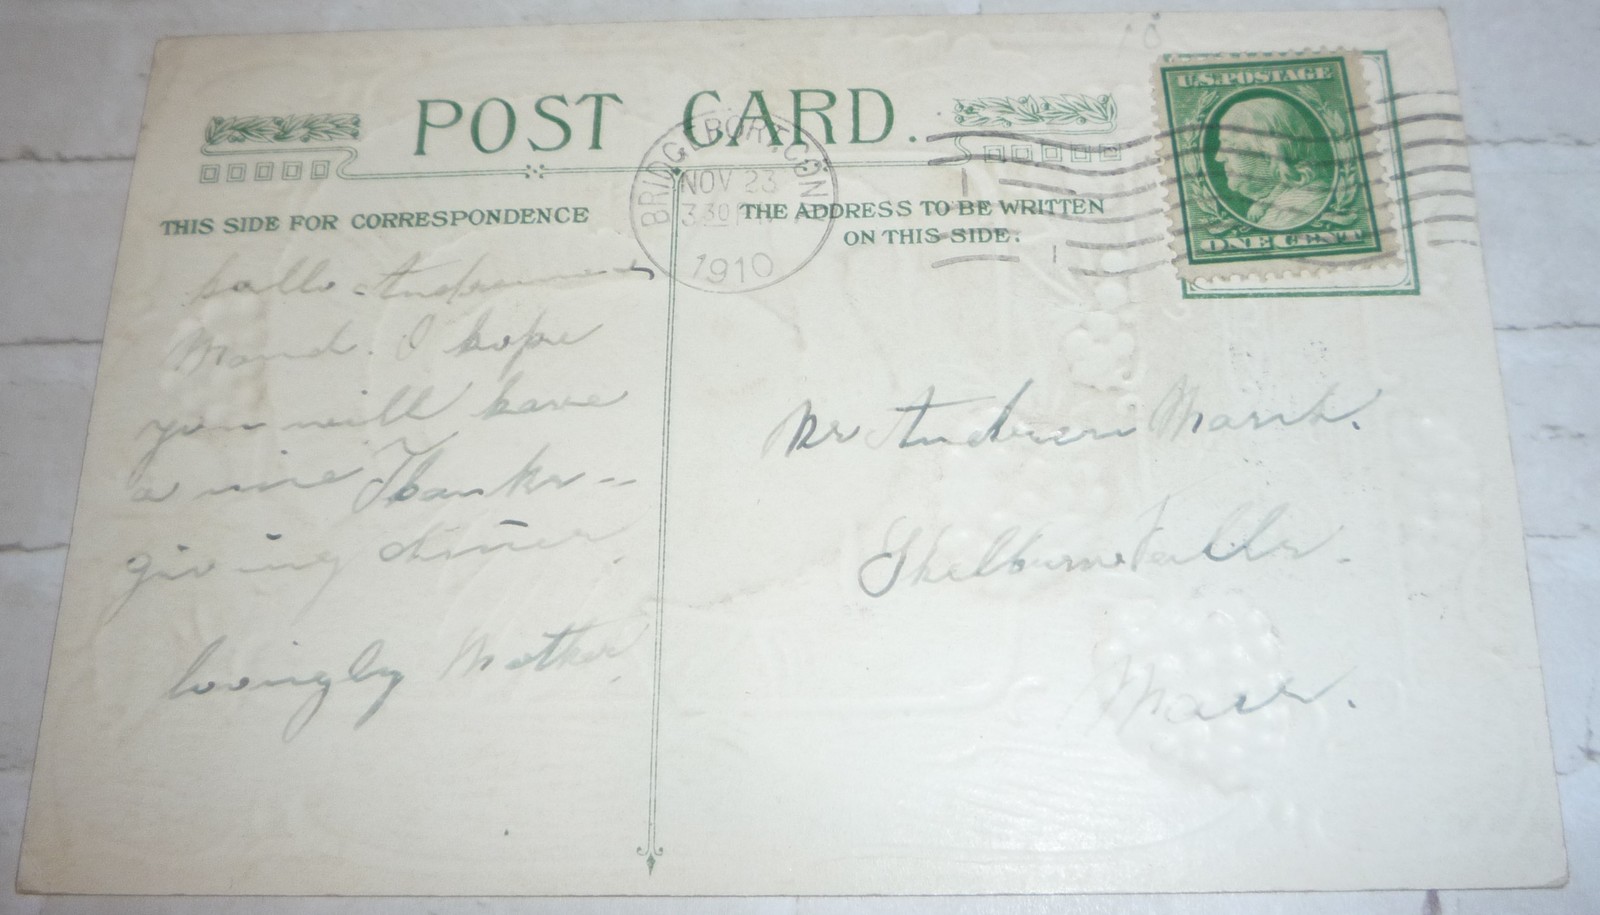 POST CARD.
U.S. POSTAGE
ONE CENT
BRIDGEPORT, CONN
NOV 23
3 30 P
1910
THIS SIDE FOR CORRESPONDENCE
THE ADDRESS TO BE WRITTEN
ON THIS SIDE.
hallo Andrew and
Maud. I hope
you will have
a nice Thanks-
giving dinner.
lovingly Mother.
Mr Andrew
Shelburne Falls.
Mass.